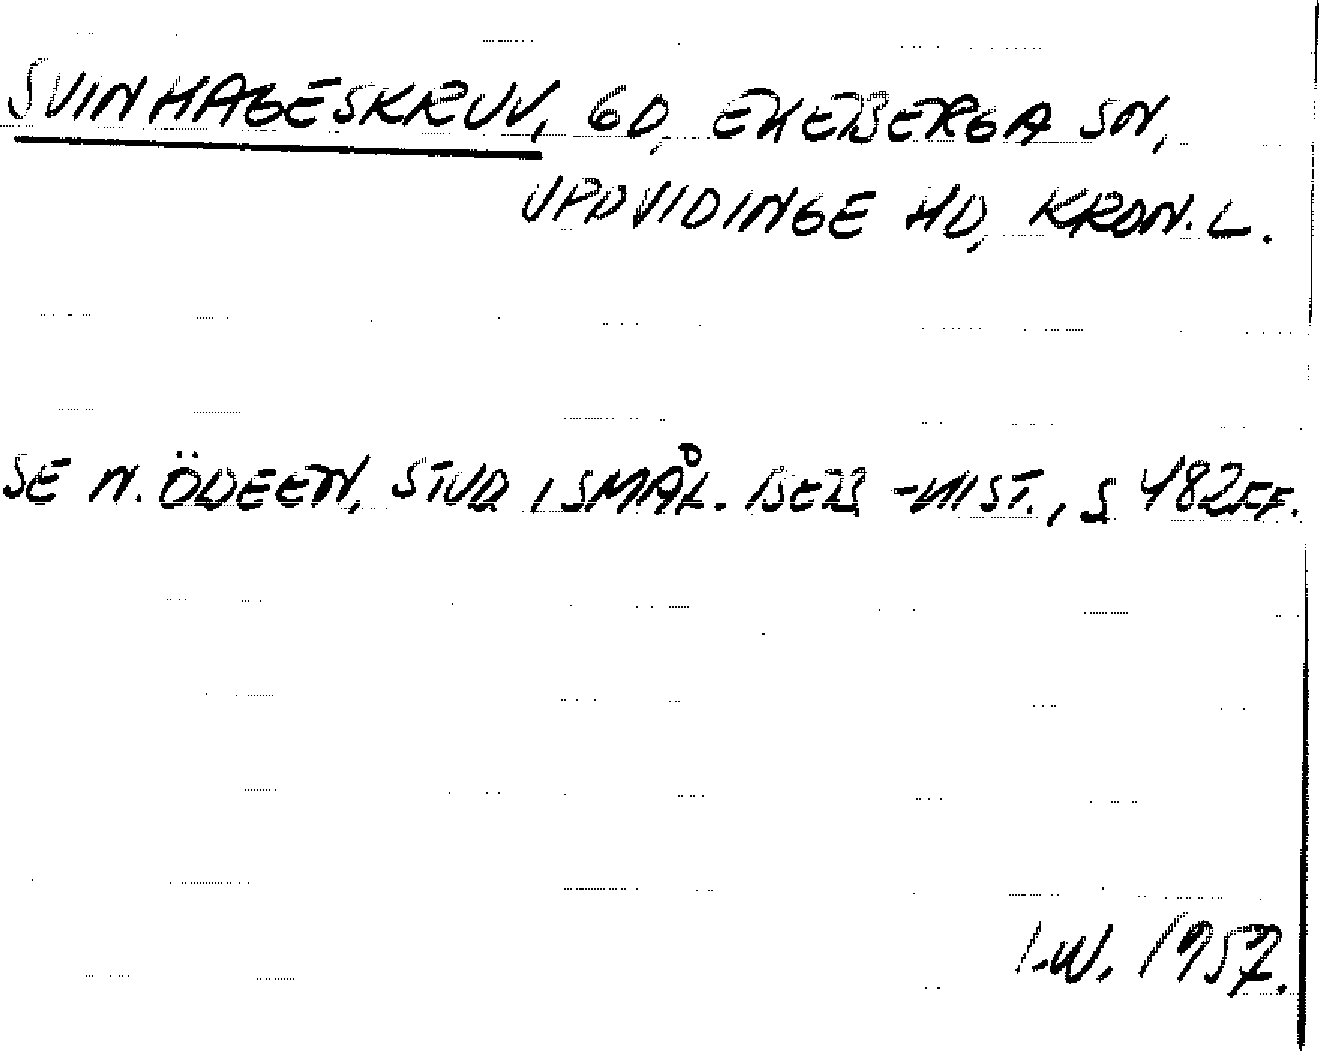 SVINHAGESKRUV, GD, EKEBERGA SN,
UPPVIDINGE HD, KRON. L.
SE N. ÖDEEN, STUD I SMÅL. BEB -HIST., S 482FF.
I.W. 1957.